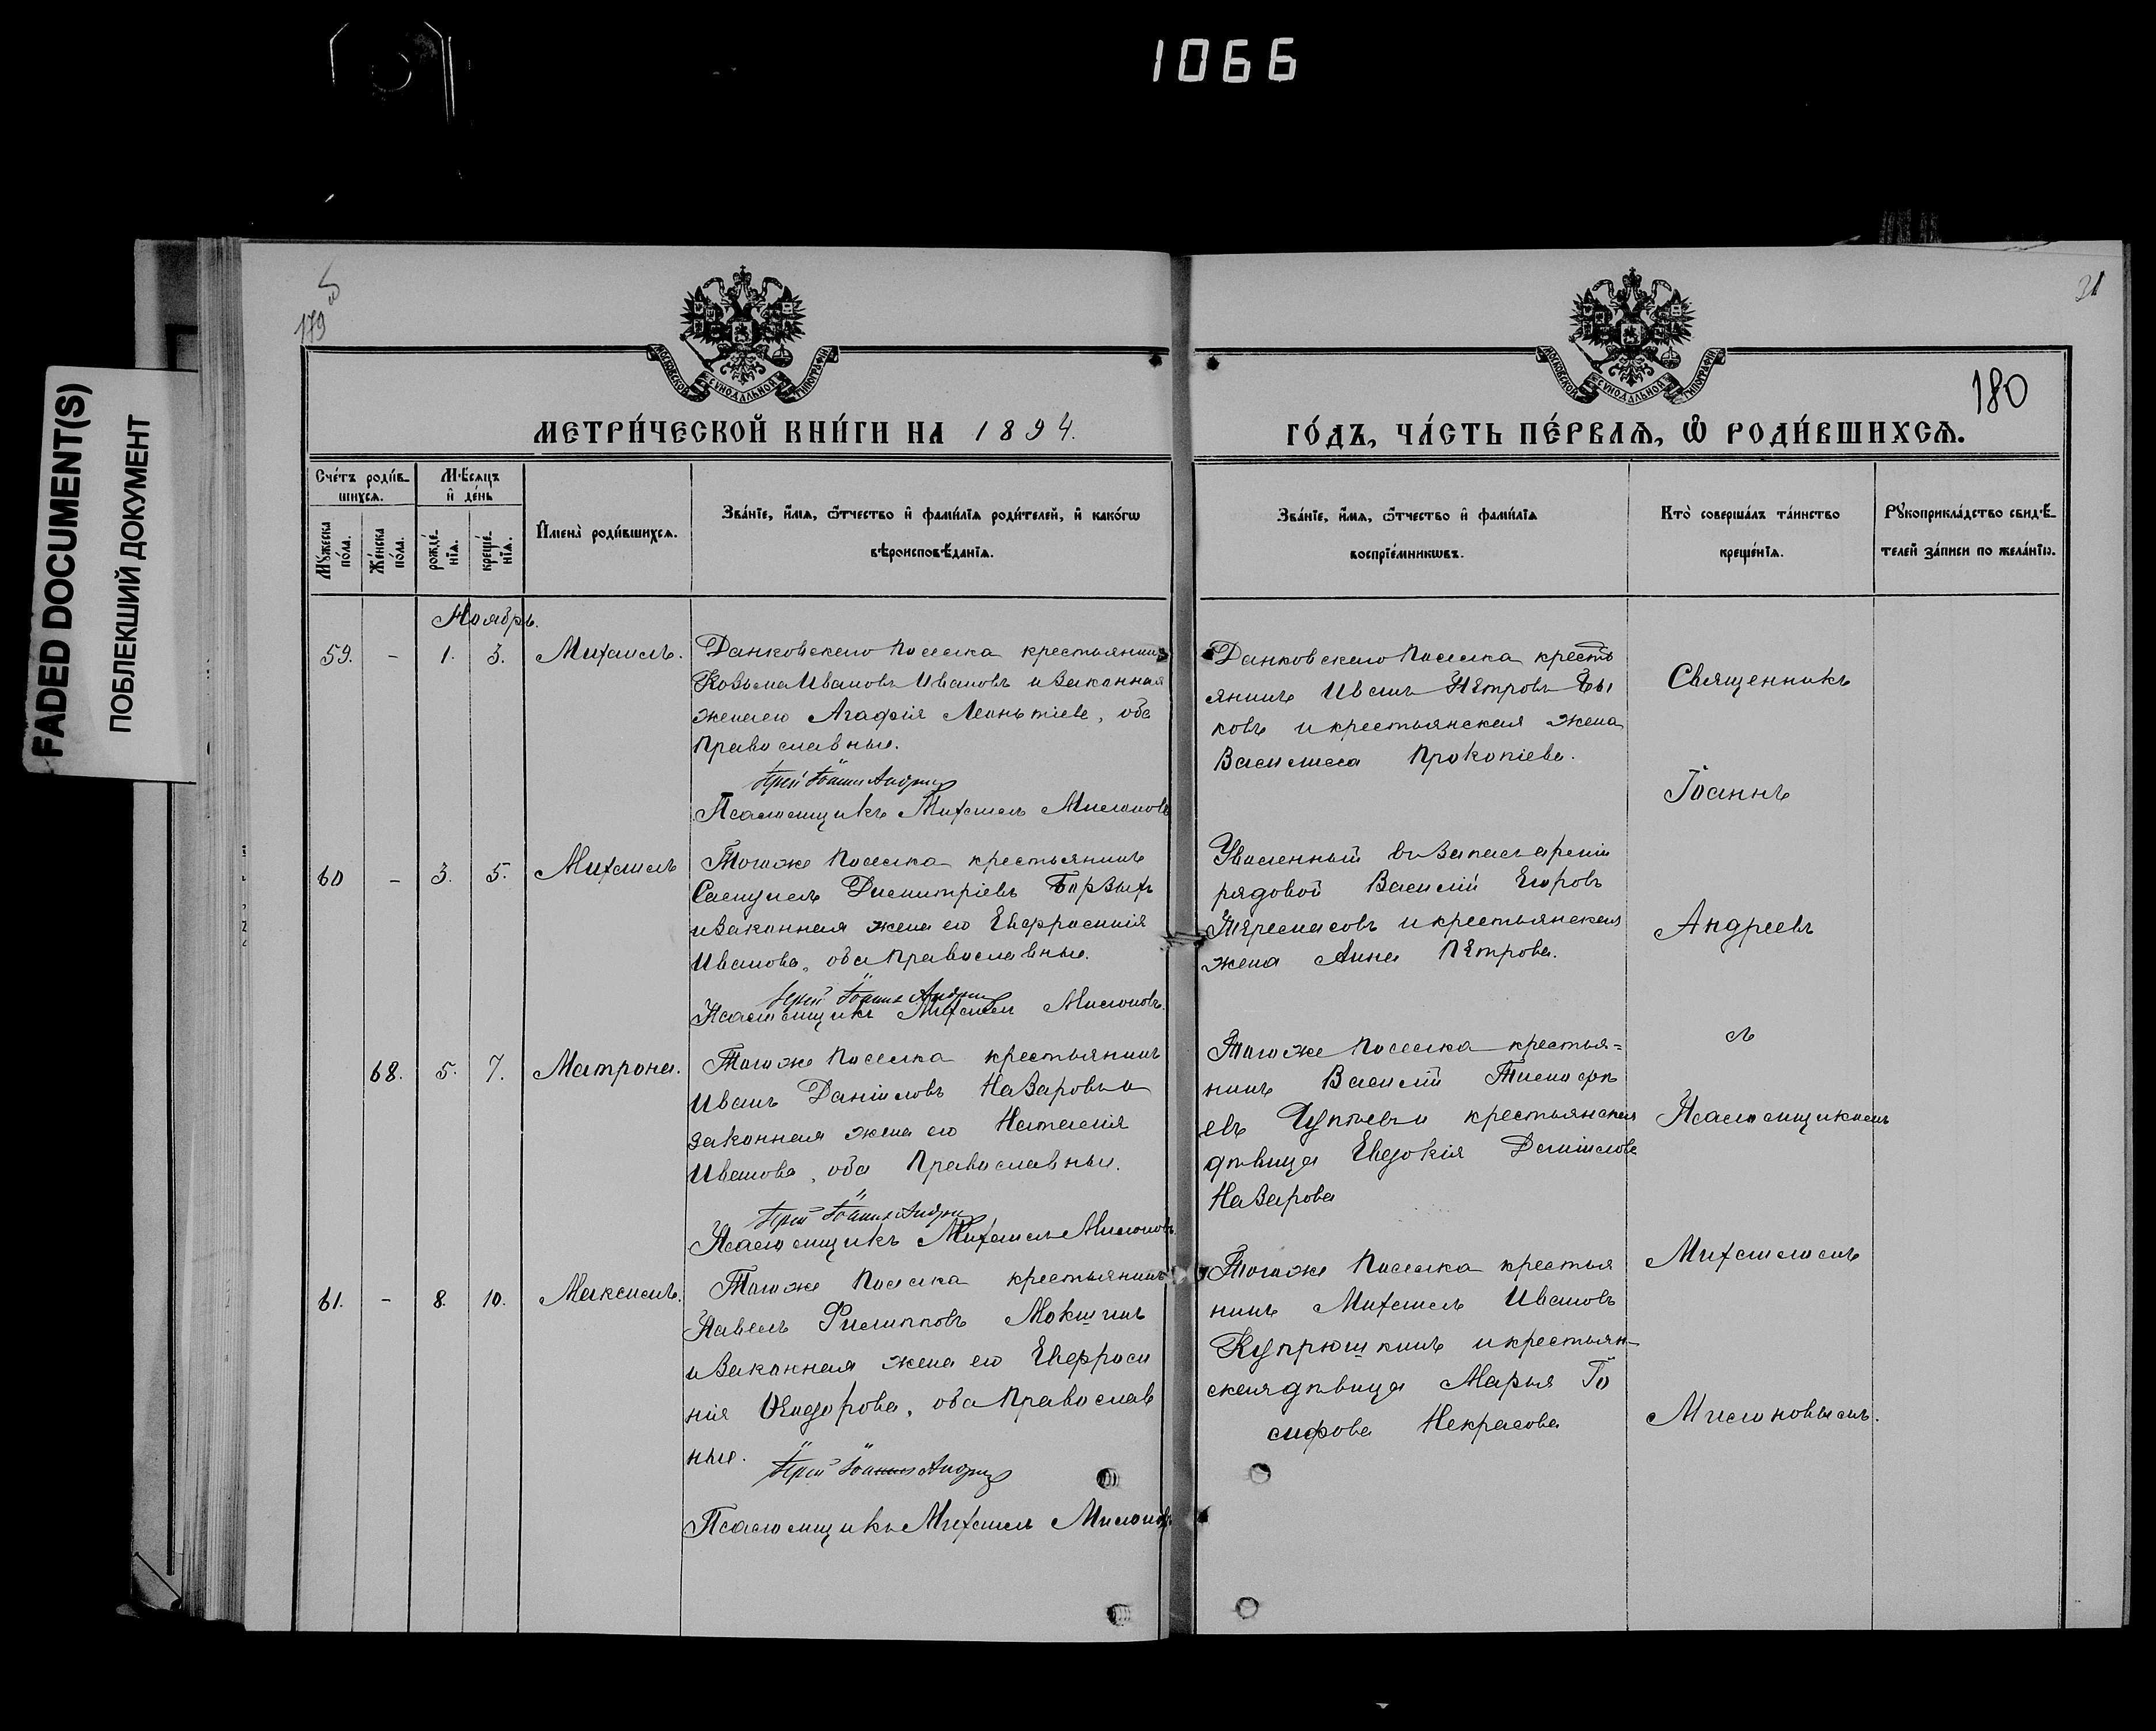 1066
FADED DOCUMENT(S)
ПОБЛЕКШИЙ ДОКУМЕНТ
179
31
180
МОСКОВСКОЙ СѴНОДАЛЬНОЙ ТИПОГРАФІИ
МОСКОВСКОЙ СѴНОДАЛЬНОЙ ТИПОГРАФІИ
МЕТРИ́ЧЕСКОЙ КНИ́ГИ НА 1894.
ГО́ДЪ, ЧА́СТЬ ПЕ́РВАЯ, Ѡ РОДИ́ВШИХСЯ.
Сче́тъ роди́в-
шихся.
Мѣ́сяцъ
и҆ де́нь
Мꙋ́жеска
по́ла.
Же́нска
по́ла.
рожде́-
нїя.
креще́-
нїя.
И҆мена̀ роди́вшихся.
Зва́нїе, и҆́мя, ѻ҆́тчество и҆ фами́лїя роди́телей, и҆ како́гѡ
вѣроисповѣ́данїя.
Зва́нїе, и҆́мя, ѻ҆́тчество и҆ фами́лїя
воспрїе́мникѡвъ.
Кто̀ соверша́лъ та́инство
креще́нїя.
Рꙋкоприкла́дство свидѣ́-
телей за́писи по жела́нїю.
Ноябрь.
59. - 1. 3. Михаилъ.
Данковскаго поселка крестьянинъ
Козьма Ивановъ Ивановъ и законная
жена его Агафія Леонтіева, оба
православные.
Іерей Іоаннъ Андреев
Псаломщикъ Михаилъ Милоновъ
Данковскаго поселка кресть
янинъ Иванъ Пѣтровъ Бы
ковъ и крестьянская жена
Василиса Прокопіева.
60 - 3. 5. Михаилъ
Тогоже поселка крестьянинъ
Самуилъ Димитріевъ Борзыхъ
и законная жена его Евфросинія
Иванова, оба православные.
Іерей Іоаннъ Андреев
Псаломщикъ Михаилъ Милоновъ.
Уволенный въ запасъ арміи
рядовой Василій Егоровъ
и крестьянская
жена Анна Пѣтрова.
68. 5. 7. Матрона.
Тогоже поселка крестьянинъ
Иванъ Даніиловъ Назаровъ и
законная жена его Наталія
Иванова, оба православные.
Іерей Іоаннъ Андреев
Псаломщикъ Михаилъ Милоновъ
Тогоже поселка крестья=
нинъ Василій Тимофѣ
евъ и крестьянская
дѣвица Евдокія Даніилова
Назарова
61. - 8. 10. Максимъ.
Тогоже поселка крестьянинъ
Павелъ Филипповъ Мокшинъ
и законная жена его Евфроси
нія Ѳеодорова, оба православ
ные.
Іерей Іоаннъ Андреев
Псаломщикъ Михаилъ Милоновъ
Тогоже поселка крестья
нинъ Михаилъ Ивановъ
Купрюшкинъ и крестьян-
ская дѣвица Марья Іо
сифова Некрасова
Священникъ
Іоаннъ
Андреевъ
съ
Псаломщикомъ
Михаиломъ
Милоновымъ.